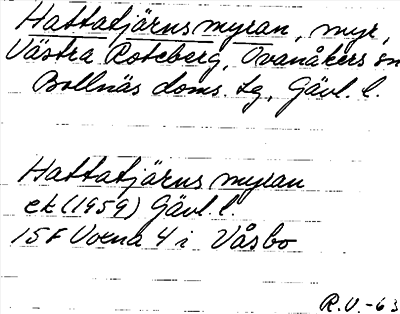 Hattatjärnsmyran, myr,
Västra Roteberg, Ovanåkers sn
Bollnäs doms. tg, Gävl. l.
Hattatjärnsmyran
ek (1959) Gävl. l.
15F Voxna 4 i Våsbo
R.V.-63